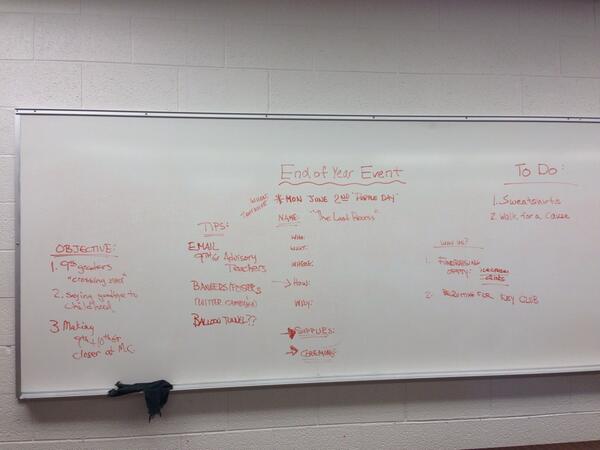 End of Year Event
* MON JUNE 2ND "PURPLE DAY"
NAME: "The Last Recess"
WHO:
WHAT:
WHERE:
→ HOW:
WHY:
→ SUPPLIES:
→ CEREMONY:
OBJECTIVE:
1. 9th graders
"crossing over"
2. saying goodbye to
childhood
3 Making
9th + 10th gr
closer at M.C.
TIPS:
EMAIL
9TH Gr Advisory
Teachers
BANNERS/POSTERS
TWITTER CAMPAIGN
BALLOON TUNNEL??
To Do:
1. Sweatshirts
2. Walk for a Cause
WHY US?
1. FUNDRAISING
OPPTY: ICE CREAM
2. RECRUITING FOR KEY CLUB